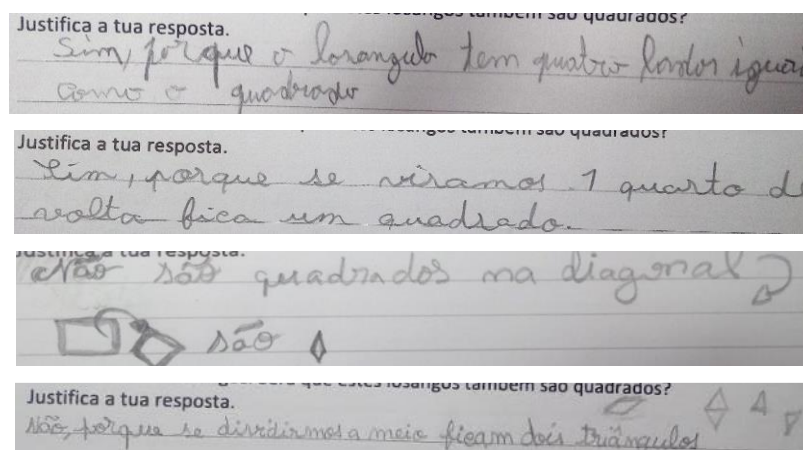 losangos também são quadrados?
Justifica a tua resposta.
Sim, porque o losangulo tem quatro lados iguai
como o quadrado
losangos também são quadrados?
Justifica a tua resposta.
Sim, porque se viramos 1 quarto d
volta fica um quadrado.
Justifica a tua resposta.
Não são quadrados na diagonal
são
que estes losangos também são quadrados?
Justifica a tua resposta.
Não, porque se dividirmos a meio ficam dois triângulos